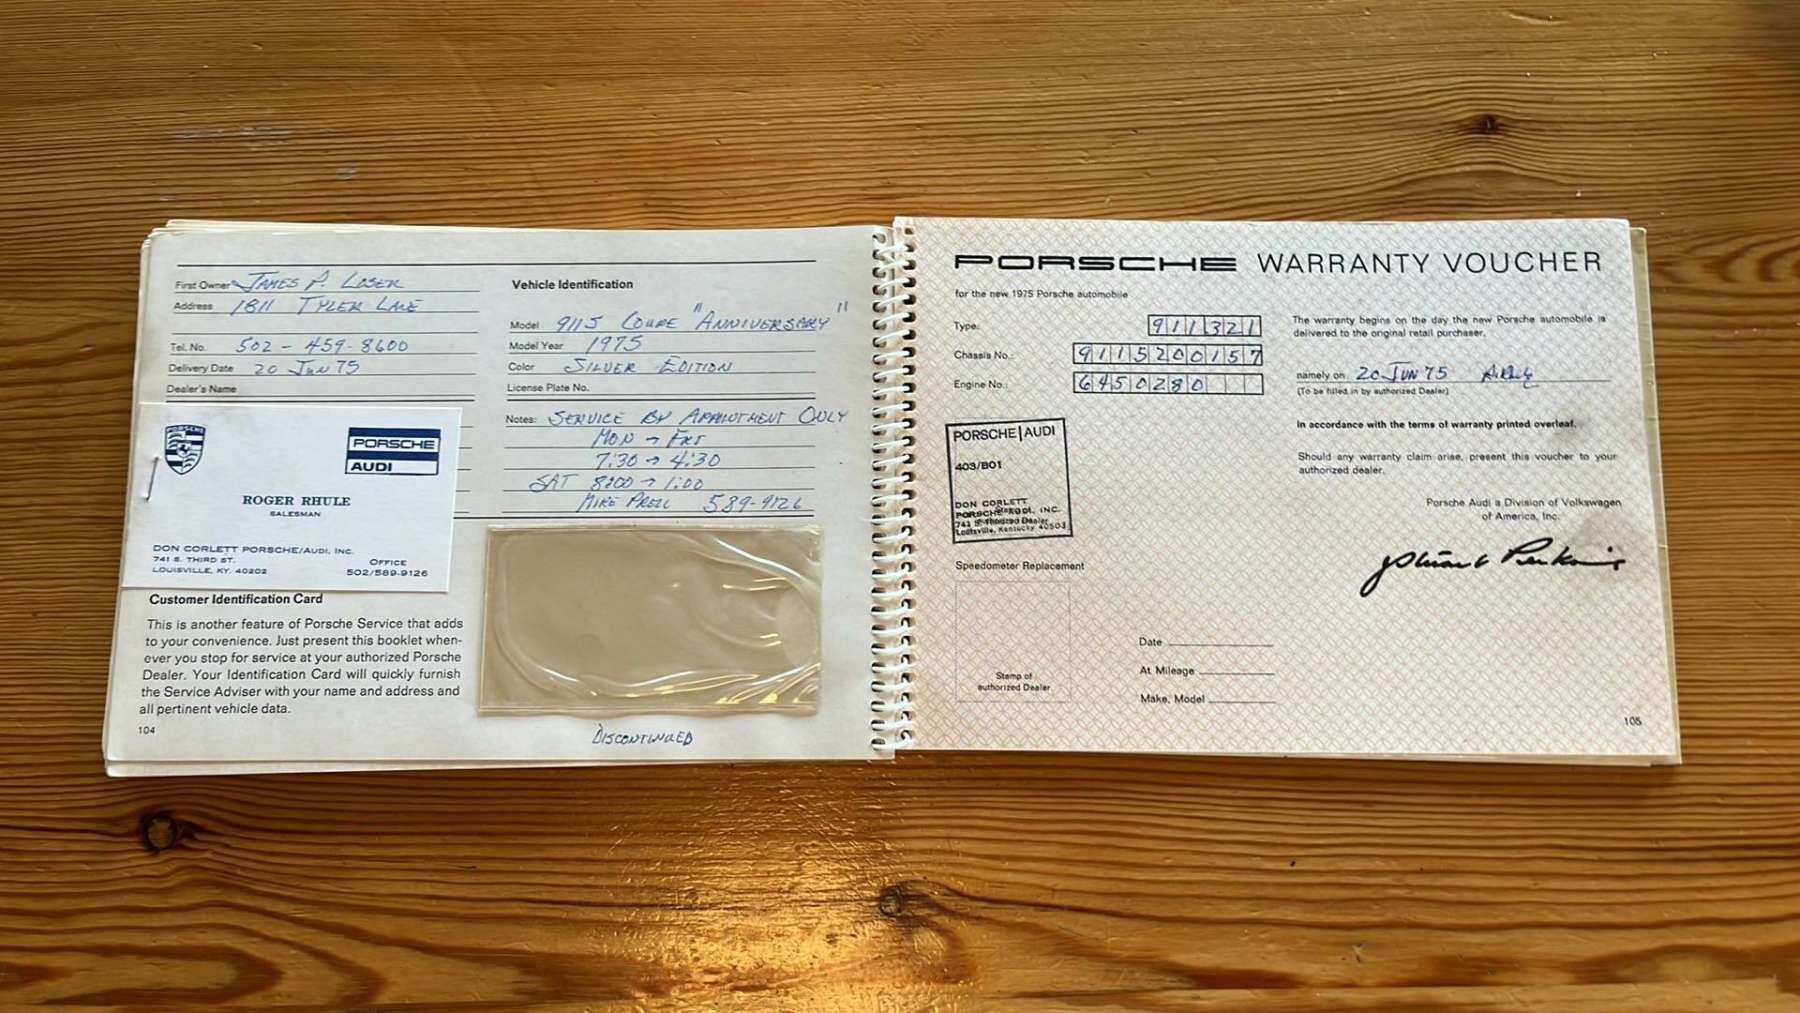 First Owner JAMES P. LOSER
Address 1811 TYLER LANE
Tel. No. 502 - 459 - 8600
Delivery Date 20 JUN 75
Dealer's Name
PORSCHE
PORSCHE
AUDI
ROGER RHULE
SALESMAN
DON CORLETT PORSCHE/AUDI, INC.
741 S. THIRD ST.
LOUISVILLE, KY. 40202
OFFICE
502/589-9126
Customer Identification Card
This is another feature of Porsche Service that adds
to your convenience. Just present this booklet when-
ever you stop for service at your authorized Porsche
Dealer. Your Identification Card will quickly furnish
the Service Adviser with your name and address and
all pertinent vehicle data.
104
Vehicle Identification
Model 911S COUPE "ANNIVERSARY"
Model Year 1975
Color SILVER EDITION
License Plate No.
Notes: SERVICE BY APPOINTMENT ONLY
MON → FRI
7:30 → 4:30
SAT 8:00 → 1:00
MIKE 589-9126
DISCONTINUED
PORSCHE WARRANTY VOUCHER
for the new 1975 Porsche automobile
Type: 911321
Chassis No.: 9115200157
Engine No.: 6450280
PORSCHE|AUDI
403/B01
DON CORLETT
PORSCHE AUDI, INC.
741 S.
Authorized Dealer
Louisville, Kentucky
Speedometer Replacement
Stamp of
authorized Dealer
Date
At Mileage
Make, Model
The warranty begins on the day the new Porsche automobile is
delivered to the original retail purchaser,
namely on 20 JUN 75
(To be filled in by authorized Dealer)
In accordance with the terms of warranty printed overleaf.
Should any warranty claim arise, present this voucher to your
authorized dealer.
Porsche Audi a Division of Volkswagen
of America, Inc.
105